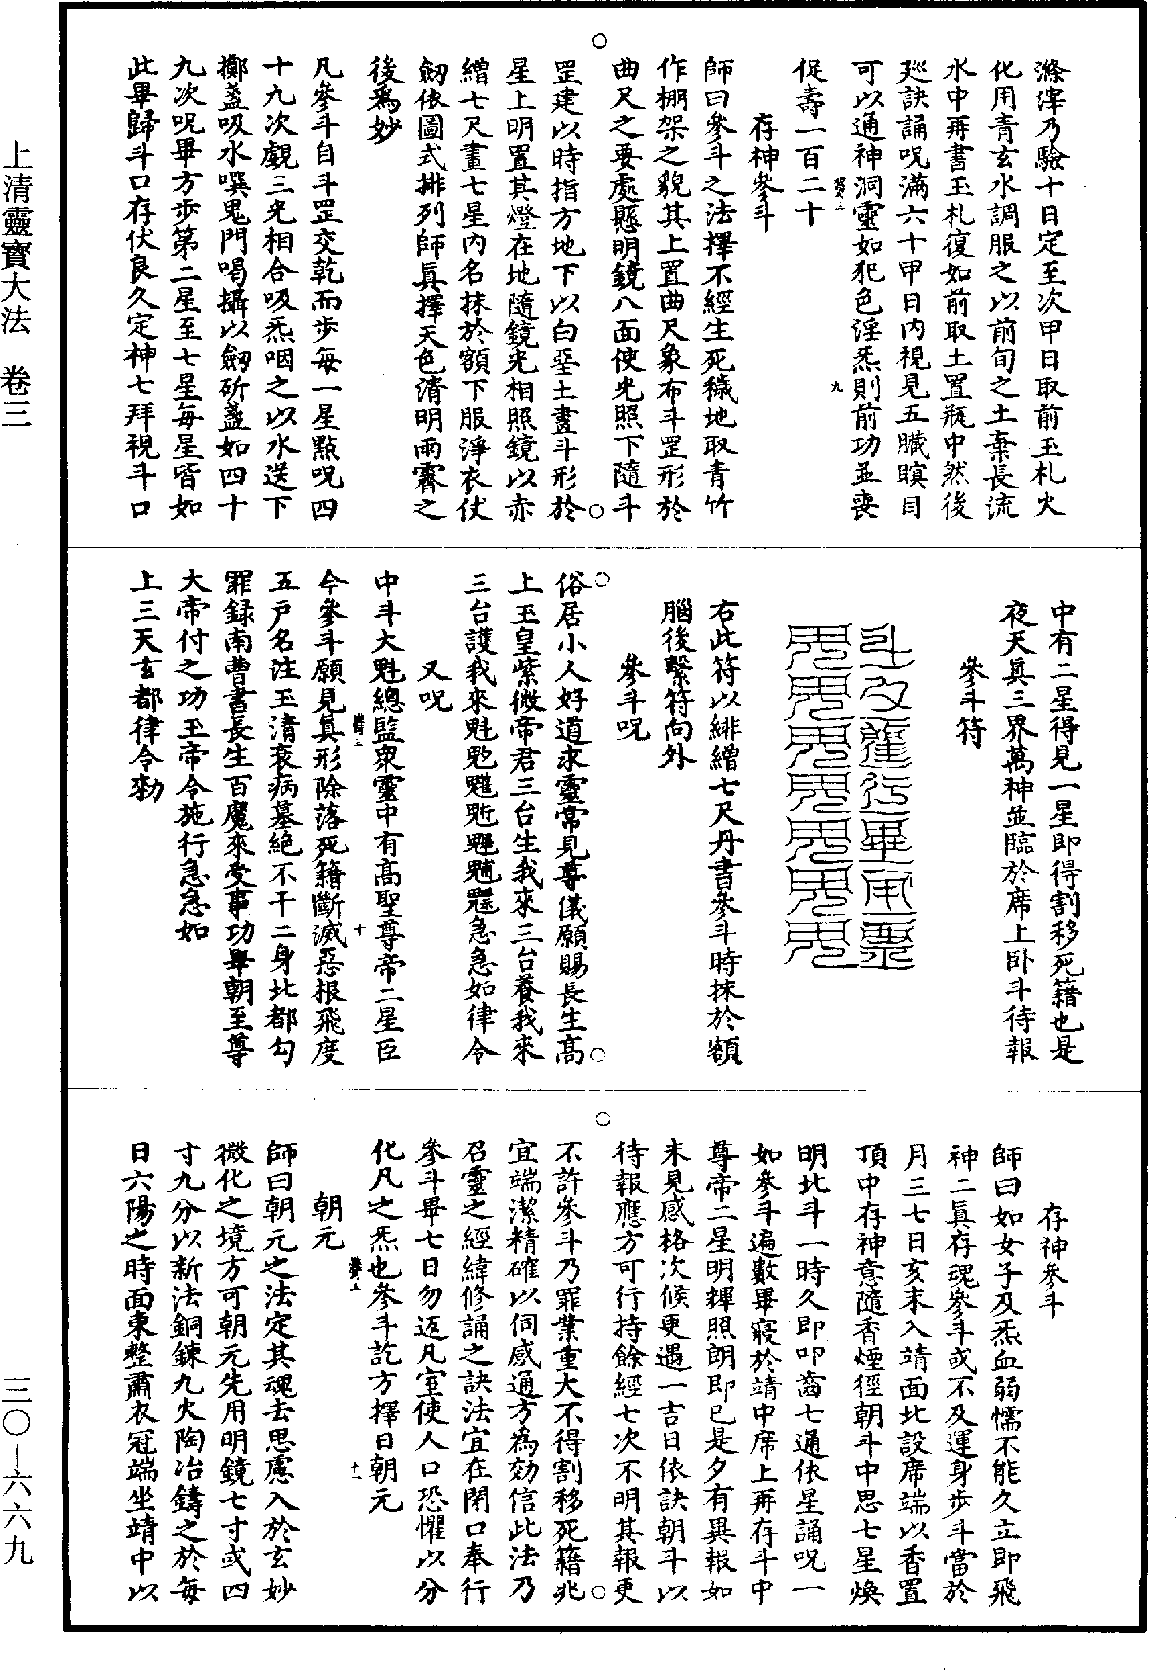 上清靈寶大法　卷三
三〇－六六九
滌滓乃驗十日定至次甲日取前玉札火
化用青玄水調服之以前旬之土棄長流
水中再書玉札復如前取土置瓶中然後
廵訣誦呪滿六十甲日內視見五臟瞑目
可以通神洞靈如犯色淫炁則前功並喪
促壽一百二十
九
存神參斗
師曰參斗之法擇不經生死穢地取青竹
作棚架之貌其上置曲尺象布斗罡形於
曲尺之要處懸明鏡八面使光照下隨斗
罡建以時指方地下以白堊土畫斗形於
星上明置其燈在地隨鏡光相照鏡以赤
繒七尺畫七星內名抹於額下服淨衣仗
劒依圖式排列師真擇天色清明雨霽之
後爲妙
凡參斗自斗罡交乾而步每一星㸃呪四
十九次覷三光相合吸炁咽之以水送下
擲盞吸水噀鬼門喝攝以劒斫盞如四十
九次呪畢方步第二星至七星每星皆如
此畢歸斗口存伏良久定神七拜視斗口
中有二星得見一星即得割移死籍也是
夜天真三界萬神並臨於席上卧斗待報
參斗符
右此符以緋繒七尺丹書參斗時抹於額
腦後繫符向外
參斗呪
俗居小人好道求靈常見尊儀願賜長生高
上玉皇紫微帝君三台生我來三台養我來
三台護我來魁𩲃䰢魓䰡魒魓急急如律令
又呪
中斗大魁總監衆靈中有高聖尊帝二星臣
十
今參斗願見真形除落死籍斷滅惡根飛度
五戶名注玉清衰病墓絕不干二身北都勾
罪録南曹書長生百魔來受事功舉朝至尊
大帝付之功玉帝令施行急急如
上三天玄都律令勑
存神參斗
師曰如女子及炁血弱懦不能久立即飛
神二真存魂參斗或不及運身步斗當於
月三七日亥末入靖面北設席端以香置
頂中存神意隨香煙徑朝斗中思七星煥
明北斗一時久即叩齒七通依星誦呪一
如參斗遍數畢寢於靖中席上再存斗中
尊帝二星明輝照朗即已是夕有異報如
未見感格次候更遇一吉日依訣朝斗以
待報應方可行持餘經七次不明其報更
不許參斗乃罪業重大不得割移死籍兆
宜端潔精確以伺感通方為効信此法乃
召靈之經緯修誦之訣法宜在閉口奉行
參斗畢七日勿返凡室使人口恐懼以分
化凡之炁也參斗訖方擇日朝元
十一
朝元
師曰朝元之法定其魂去思慮入於玄妙
微化之境方可朝元先用明鏡七寸或四
寸九分以新法銅鍊九火陶冶鑄之於每
日六陽之時面東整肅衣冠端坐靖中以